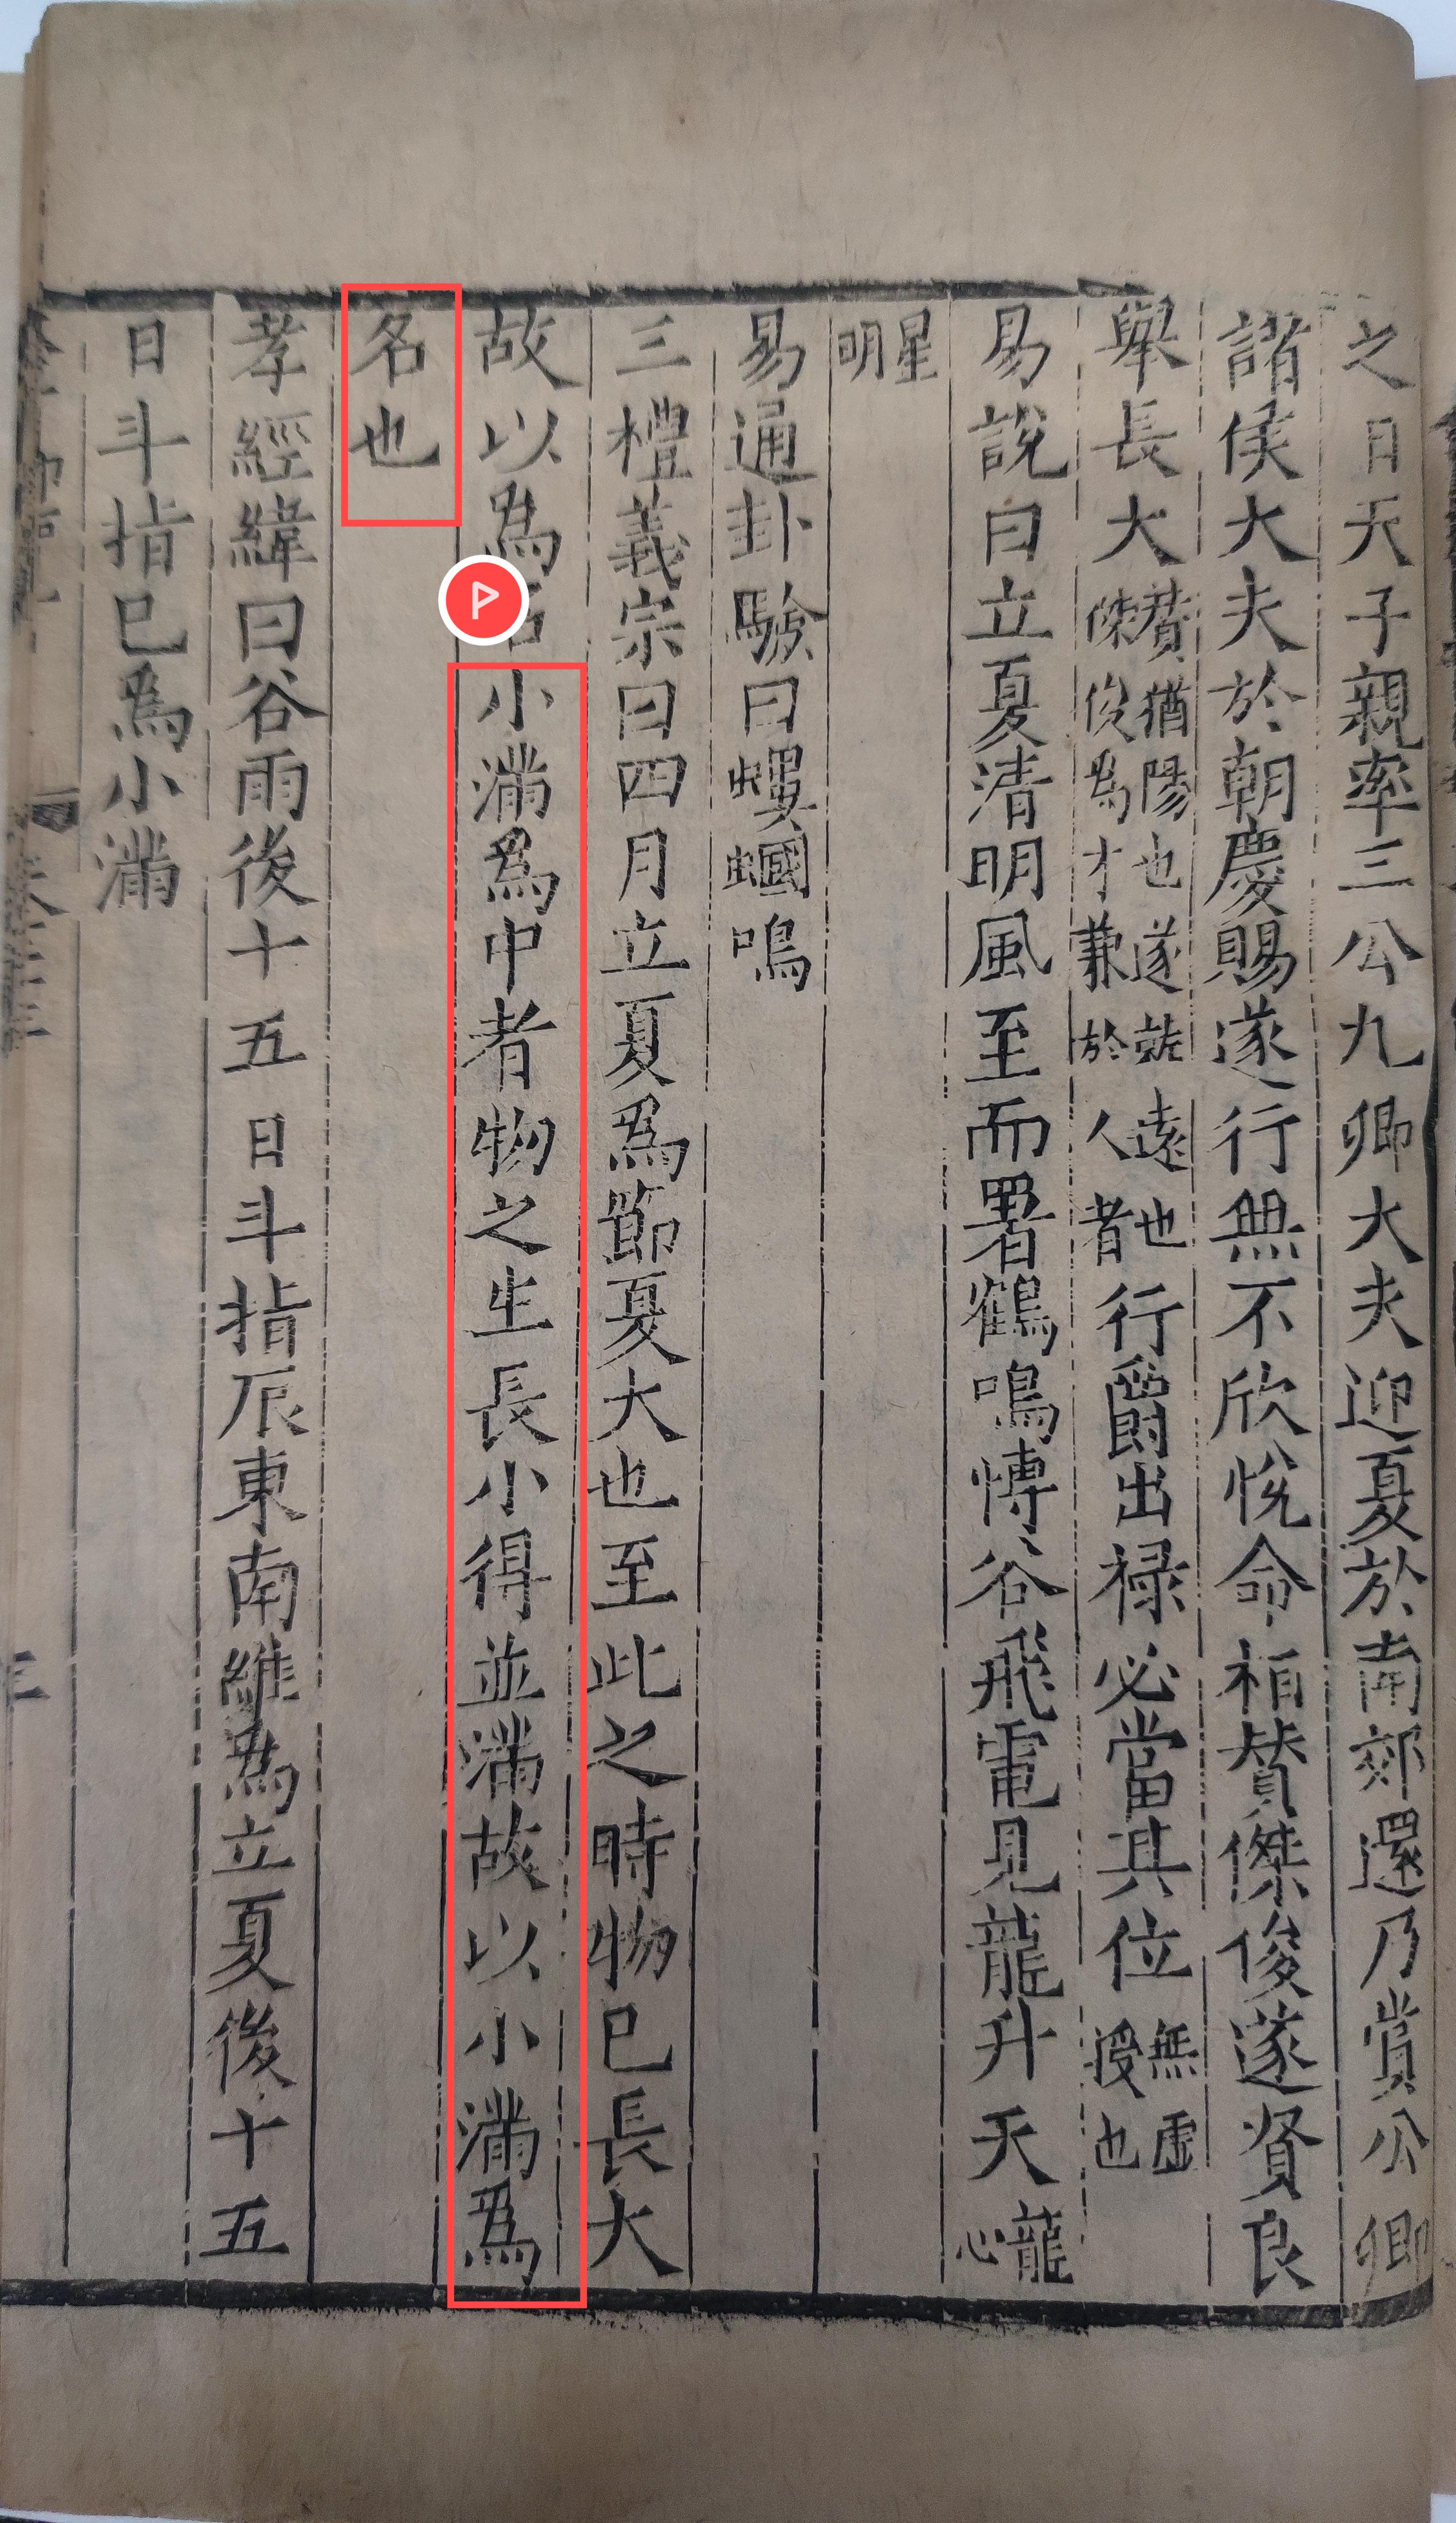 之日天子親率三公九卿大夫迎夏於南郊還乃賞公卿
諸侯大夫於朝慶賜遂行無不欣悅命相賛傑俊遂賢良
舉長大賛猶陽也遂就逺也傑俊爲才兼於人者行爵出禄必當其位無虛授也
易說曰立夏清明風至而暑鶴鳴愽谷飛電見龍升天龍心
星明
易通卦驗曰螻蟈鳴
三禮義宗曰四月立夏爲節夏大也至此之時物已長大
故以爲名小滿爲中者物之生長小得並滿故以小滿爲
名也
孝經緯曰谷雨後十五日斗指辰東南維爲立夏後十五
日斗指巳爲小滿
卷二十三
三